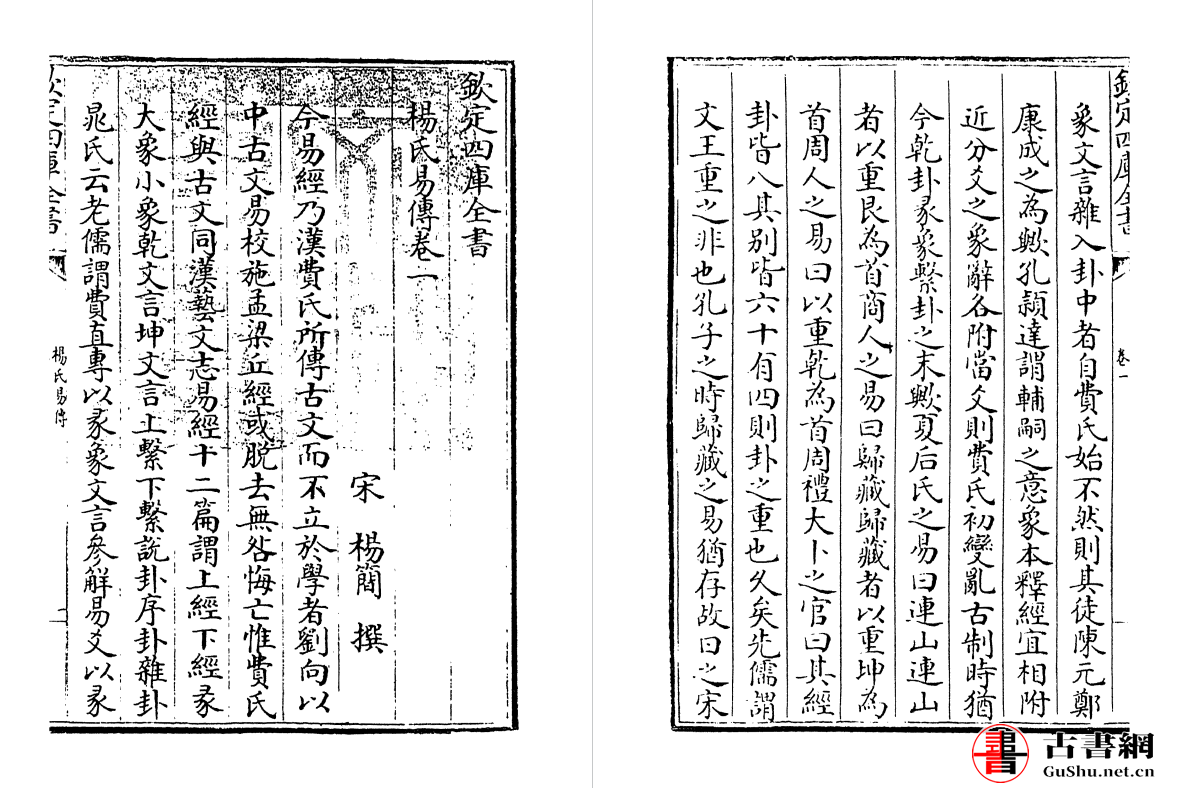 欽定四庫全書
楊氏易傳卷一
宋 楊簡 撰
今易經乃漢費氏所傳古文而不立於學者劉向以
中古文易校施孟梁丘經或脫去無咎悔亡惟費氏
經與古文同漢藝文志易經十二篇謂上經下經彖
大象小象乾文言坤文言上繫下繫說卦序卦雜卦
晁氏云老儒謂費直專以彖象文言參解易爻以彖
欽定四庫全書
楊氏易傳
一
欽定四庫全書
卷一
象文言雜入卦中者自費氏始不然則其徒陳元鄭
康成之為歟孔穎達謂輔嗣之意象本釋經宜相附
近分爻之象辭各附當爻則費氏初變亂古制時猶
今乾卦彖象繫卦之末歟夏后氏之易曰連山連山
者以重艮為首商人之易曰歸藏歸藏者以重坤為
首周人之易曰以重乾為首周禮大卜之官曰其經
卦皆八其別皆六十有四則卦之重也久矣先儒謂
文王重之非也孔子之時歸藏之易猶存故曰之宋
書
古書網
GuShu.net.cn